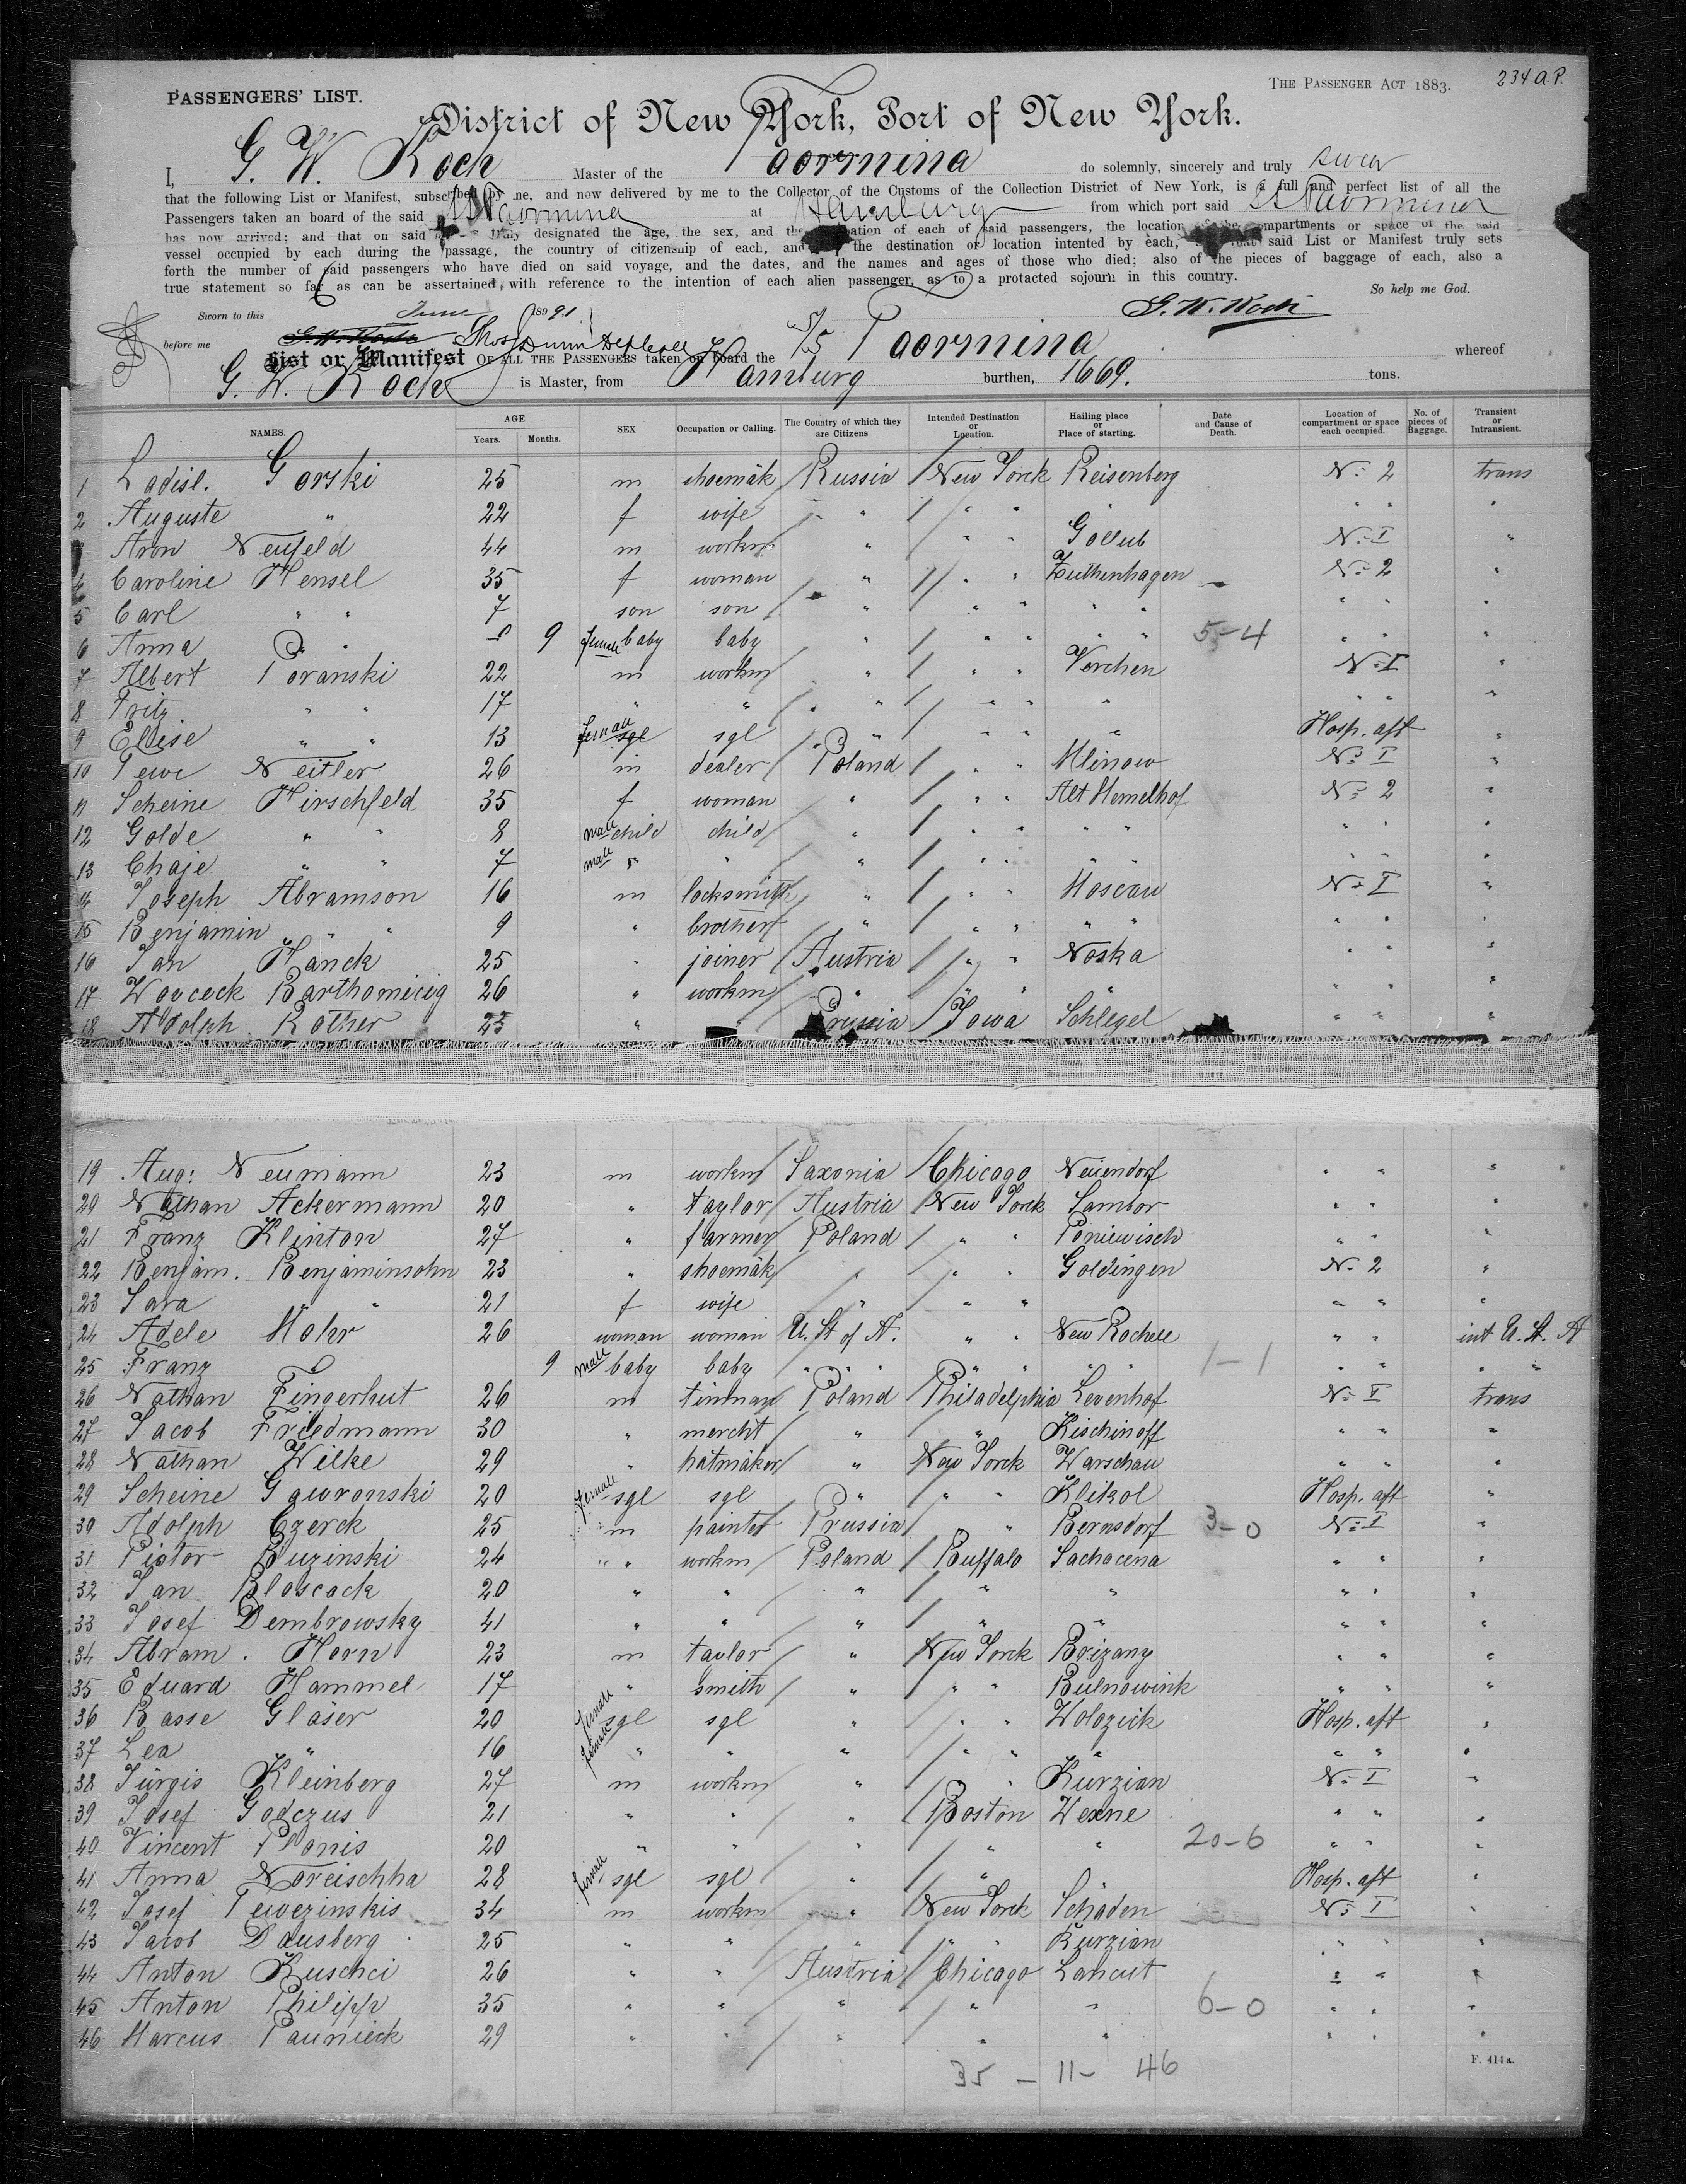 PASSENGERS' LIST.
THE PASSENGER ACT 1883.
234 A.P.
District of New York, Port of New York.
I, G. W. Koch Master of the Taormina do solemnly, sincerely and truly swear
that the following List or Manifest, subscribed by me, and now delivered by me to the Collector of the Customs of the Collection District of New York, is a full and perfect list of all the
Passengers taken an board of the said SS Taormina at Hamburg from which port said SS Taormina
has now arrived; and that on said truly designated the age, the sex, and the of each of said passengers, the location compartments or space of the said
vessel occupied by each during the passage, the country of citizenship of each, and the destination or location intented by each, that said List or Manifest truly sets
forth the number of said passengers who have died on said voyage, and the dates, and the names and ages of those who died; also of the pieces of baggage of each, also a
true statement so far as can be assertained, with reference to the intention of each alien passenger, as to a protacted sojourn in this country.
So help me God.
Sworn to this June 1891
G. W. Koch
before me G. W. Koch Thos Dunn
List or Manifest OF ALL THE PASSENGERS taken on board the S/S Taormina whereof
G. W. Koch is Master, from Hamburg burthen, 1669. tons.
NAMES. AGE Years. Months. SEX Occupation or Calling. The Country of which they are Citizens Intended Destination or Location. Hailing place or Place of starting. Date and Cause of Death. Location of compartment or space each occupied. No. of pieces of Baggage. Transient or Intransient.
1 Ladisl. Gorski 25 m shoemäk Russia New Yorck Reisenberg No 2 trans
2 Auguste " 22 f wife " " " " " " " "
Aron Neufeld 44 m workm " " " Gollub No I "
4 Caroline Hensel 35 f woman " " " Zuthenhagen No 2 "
5 Carl " " 7 son son " " " " " " " "
6 Anna " " 9 female baby baby " " " " " 5-4 " " "
7 Albert Poranski 22 m workm " " " Verchen No I "
8 Fritz " " 17 " " " " " " " " " "
9 Elise " " 13 female sgl sgl " " " " " Hosp. aft "
10 Tewe Neitler 26 m dealer Poland " " Mlinow No I "
11 Scheine Hirschfeld 35 f woman " " " Alt Memelhof No 2 "
12 Golde " " 8 male child child " " " " " " " "
13 Chaje " " 7 male " " " " " " " " " "
14 Joseph Abramson 16 m locksmith " " " Moscau No I "
15 Benjamin " " 9 " brother " " " " " " " "
16 Jan Hanck 25 " joiner Austria " " Noska " " "
17 Wovceck Barthomicig 26 " workm " " " " " " "
18 Adolph Rother 23 " " Prussia Iowa Schlegel " " "
19 Aug: Neumann 23 m workm Saxonia Chicago Neuendorf " " "
20 Nathan Ackermann 20 " taylor Austria New Yorck Sambor " " "
21 Franz Klinton 27 " farmer Poland " " Poniewisch " " "
22 Benjam. Benjaminsohn 23 " shoemäk " " " Goldingen No 2 "
23 Sara " " 21 f wife " " " " " " "
24 Adele Mohr 26 woman woman U. St of A. " " New Rochelle " " int U. St. A
25 Franz 9 male baby baby " " " " " " " 1-1 " " " "
26 Nathan Fingerhut 26 m tinman Poland Philadelphia Levenhof No I trans
27 Jacob Friedmann 30 " mercht " " Kischinoff " " "
28 Nathan Wilke 29 " hatmäker " New Yorck Warschau " " "
29 Scheine Gawronski 20 female sgl sgl " " " Klikol Hosp. aft "
30 Adolph Czerck 25 m painter Prussia " Bernsdorf 3-0 No I "
31 Piotor Buzinski 24 " workm Poland Buffalo Sachacena " " "
32 Jan Bloscack 20 " " " " " " " "
33 Josef Dembrowsky 41 " " " " " " " "
34 Abram. Horn 23 m taylor " New Yorck Brizany " " "
35 Eduard Hammel 17 " smith " " " Bulnowink " " "
36 Basse Gläser 20 female sgl sgl " " " Wolozick Hosp. aft "
37 Lea " 16 female " " " " " " " " "
38 Jürgis Kleinberg 27 m workm " " Kurzian No I "
39 Josef Godczus 21 " " " Boston Wexne " " "
40 Vincent Plonis 20 " " " " " 20-6 " " "
41 Anna Noreischha 28 female sgl sgl " " " Hosp. aft "
42 Josef Tewezinskis 34 m workm " New Yorck Schaden No I "
43 Jacob Dausberg 25 " " " " " Kurzian " " "
44 Anton Kuschci 26 " " Austria Chicago Lancut " " "
45 Anton Philipp 35 " " " " " 6-0 " " "
46 Marcus Paunieck 29 " " " " " " " "
35 - 11 - 46
F. 414a.